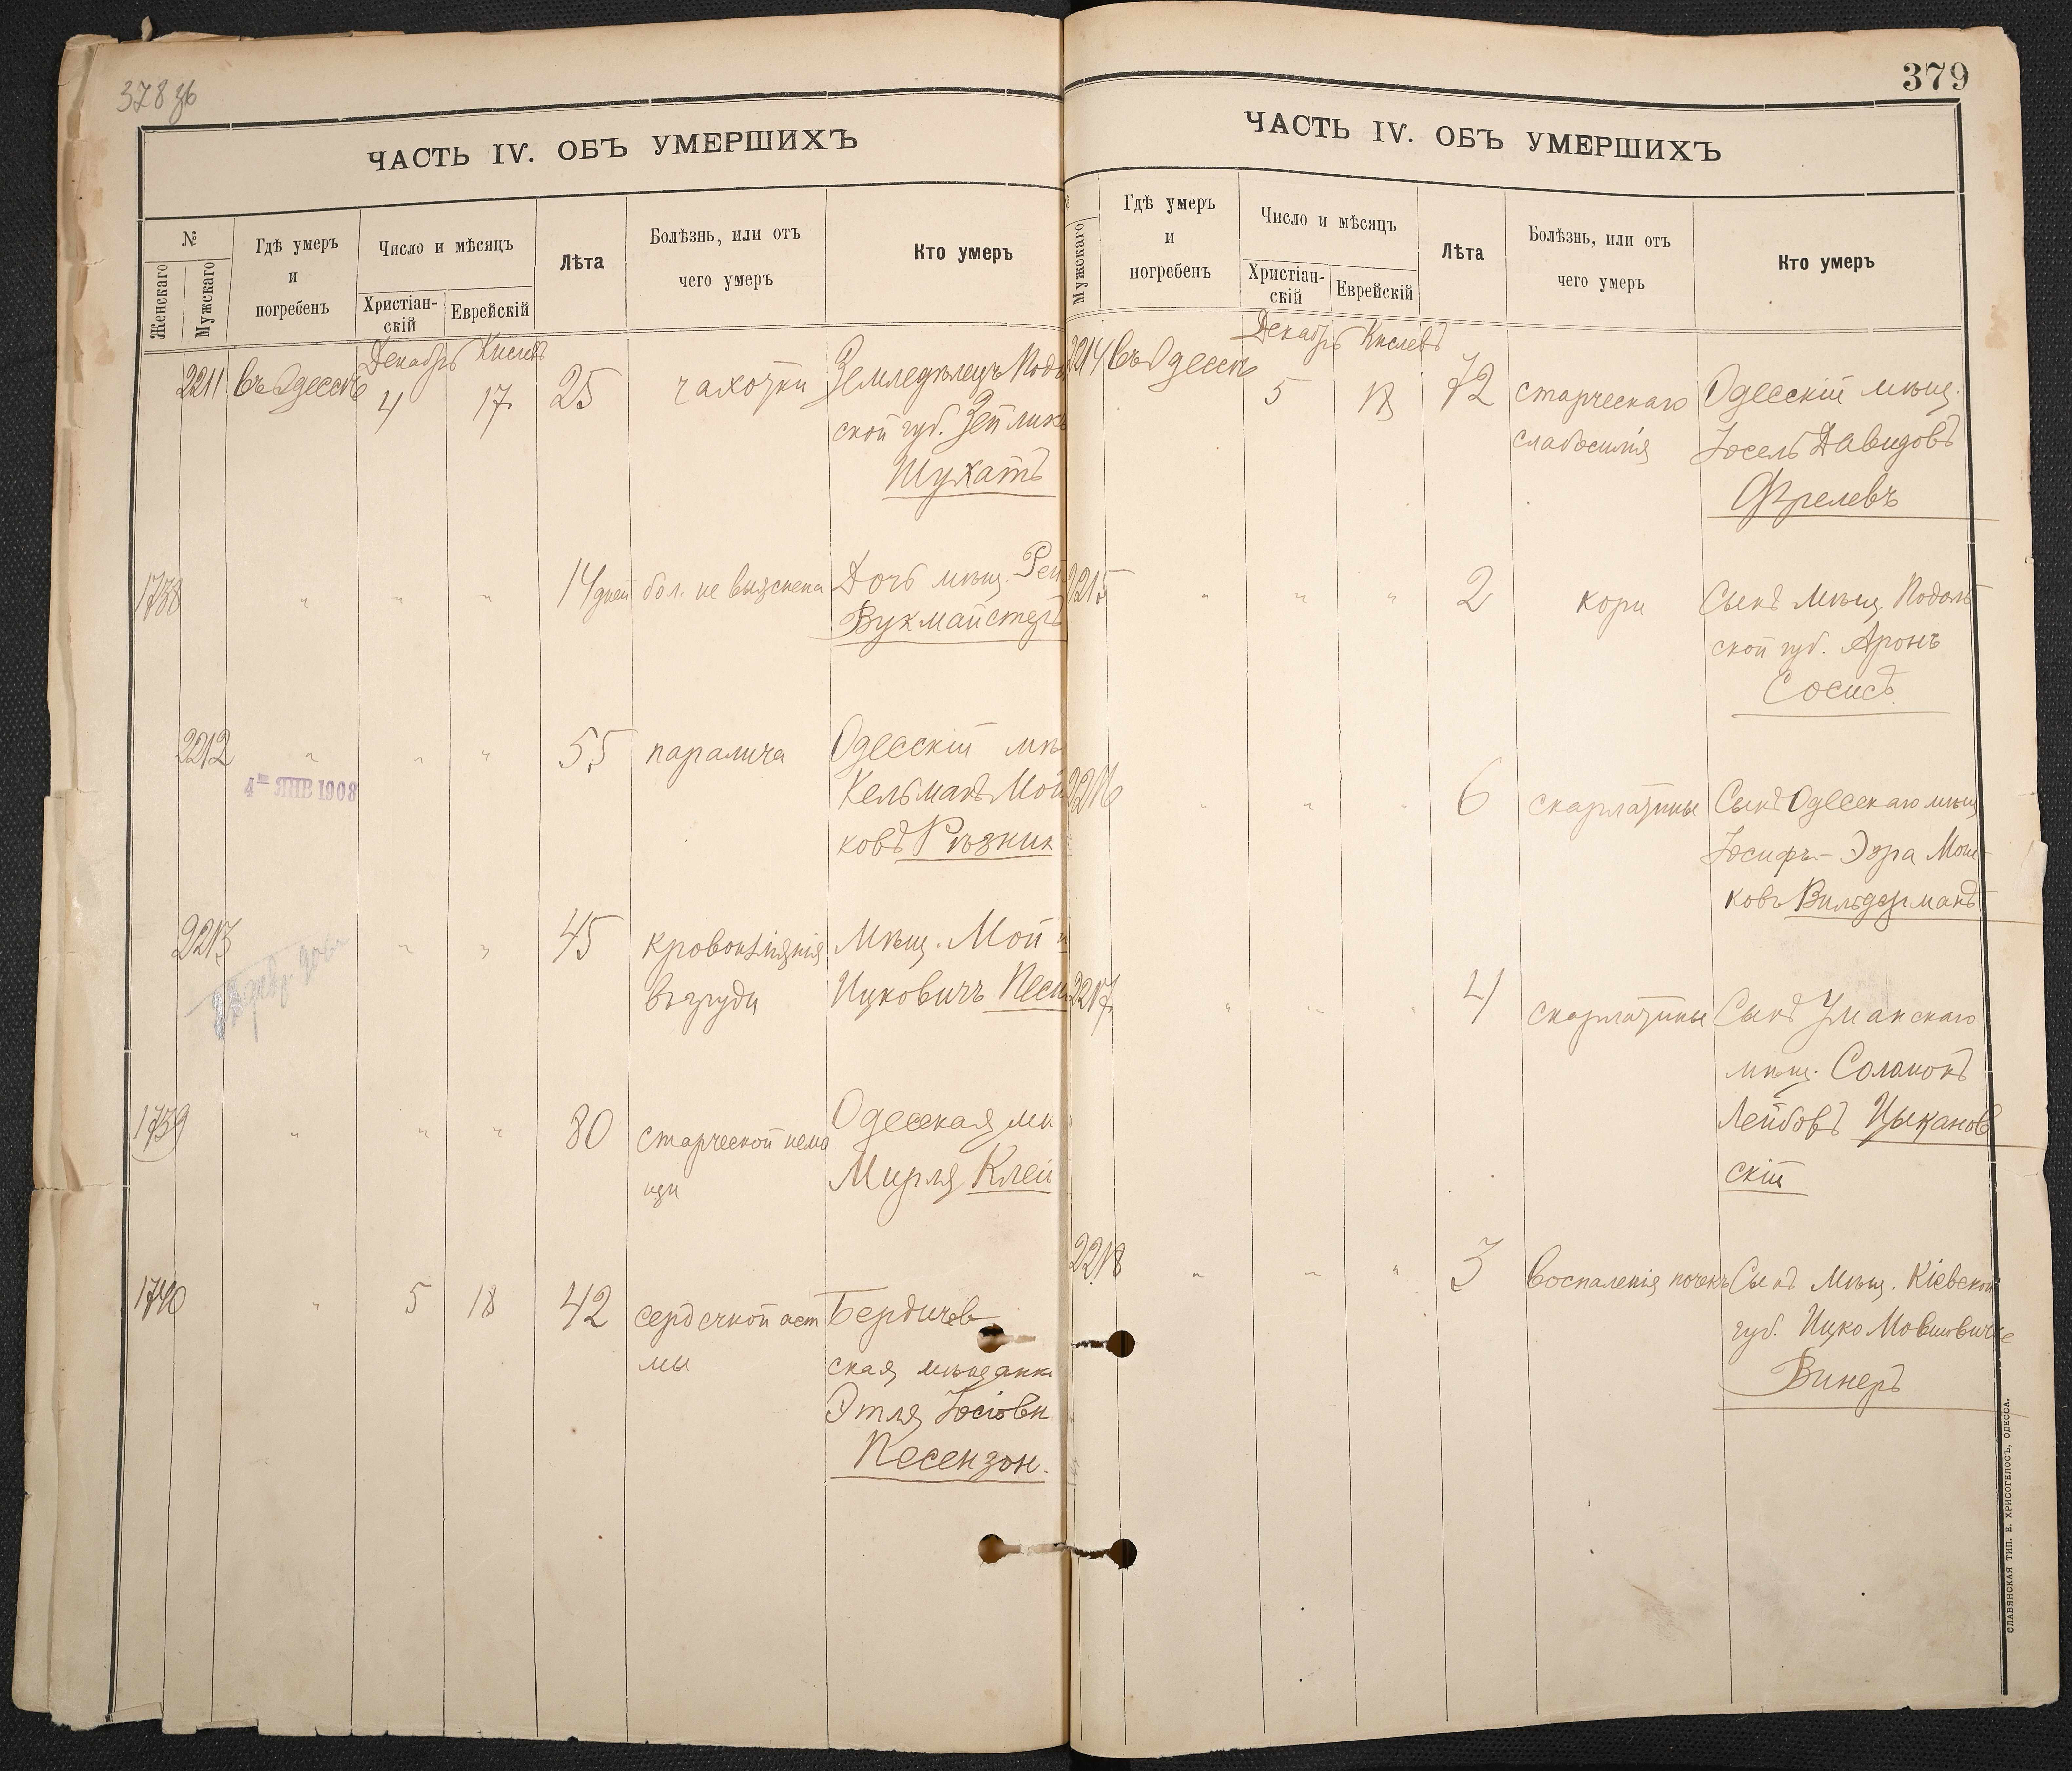 378 зв
ЧАСТЬ IV. ОБЪ УМЕРШИХЪ
№
Женскаго
Мужскаго
Гдѣ умеръ
и
погребенъ
Число и мѣсяцъ
Христіан-
скій
Еврейскій
Лѣта
Болѣзнь, или отъ
чего умеръ
Кто умеръ
Декабрь Кислевъ
2211 въ Одессѣ 4 17 25 чахотки Земледѣлецъ Подо
ской губ. Зейлик
Шухатъ
1738 " " " 14 дней бол. не выяснена Дочь мѣщ. Рей
Вукмайстеръ
2212 " " " 55 паралича Одесскій мѣ
4го ЯНВ 1908
Кельманъ Мой
ковъ Рѣзник
2213 " " 45 кровоизліянія Мѣщ. Мой
въ груди Ицковичъ Песи
1739 " " " 80 старческой немо Одесская мѣ
щи Мирля Клей
1740 " 5 18 42 сердечной аст Бердичев
мы ская мѣщанк
Этля Іосіовн
Песензон.
379
ЧАСТЬ IV. ОБЪ УМЕРШИХЪ
Мужскаго
Гдѣ умеръ
и
погребенъ
Число и мѣсяцъ
Христіан-
скій
Еврейскій
Лѣта
Болѣзнь, или отъ
чего умеръ
Кто умеръ
Декабрь Кислевъ
2214 въ Одессѣ 5 18 72 старческаго Одесскій мѣщ.
слабосилія Іосель Давидовъ
Фрелевъ
2215 " " " 2 кори Сынъ мѣщ. Подоль
ской губ. Аронъ
Сосисъ
2216 " " " 6 скарлатины Сынъ Одесскаго мѣщ
Іосифъ-Эзра Мош-
ковъ Вильдерманъ
2217 " " " 4 скарлатины Сынъ Уманскаго
мѣщ. Соломонъ
Лейбовъ Цыканов
скій
2218 " " " 3 воспаленія почекъ Сынъ Мѣщ. Кіевской
губ. Ицко Мовшовичъ
Винеръ
СЛАВЯНСКАЯ ТИП. Е. ХРИСОГЕЛОСЪ, ОДЕССА.